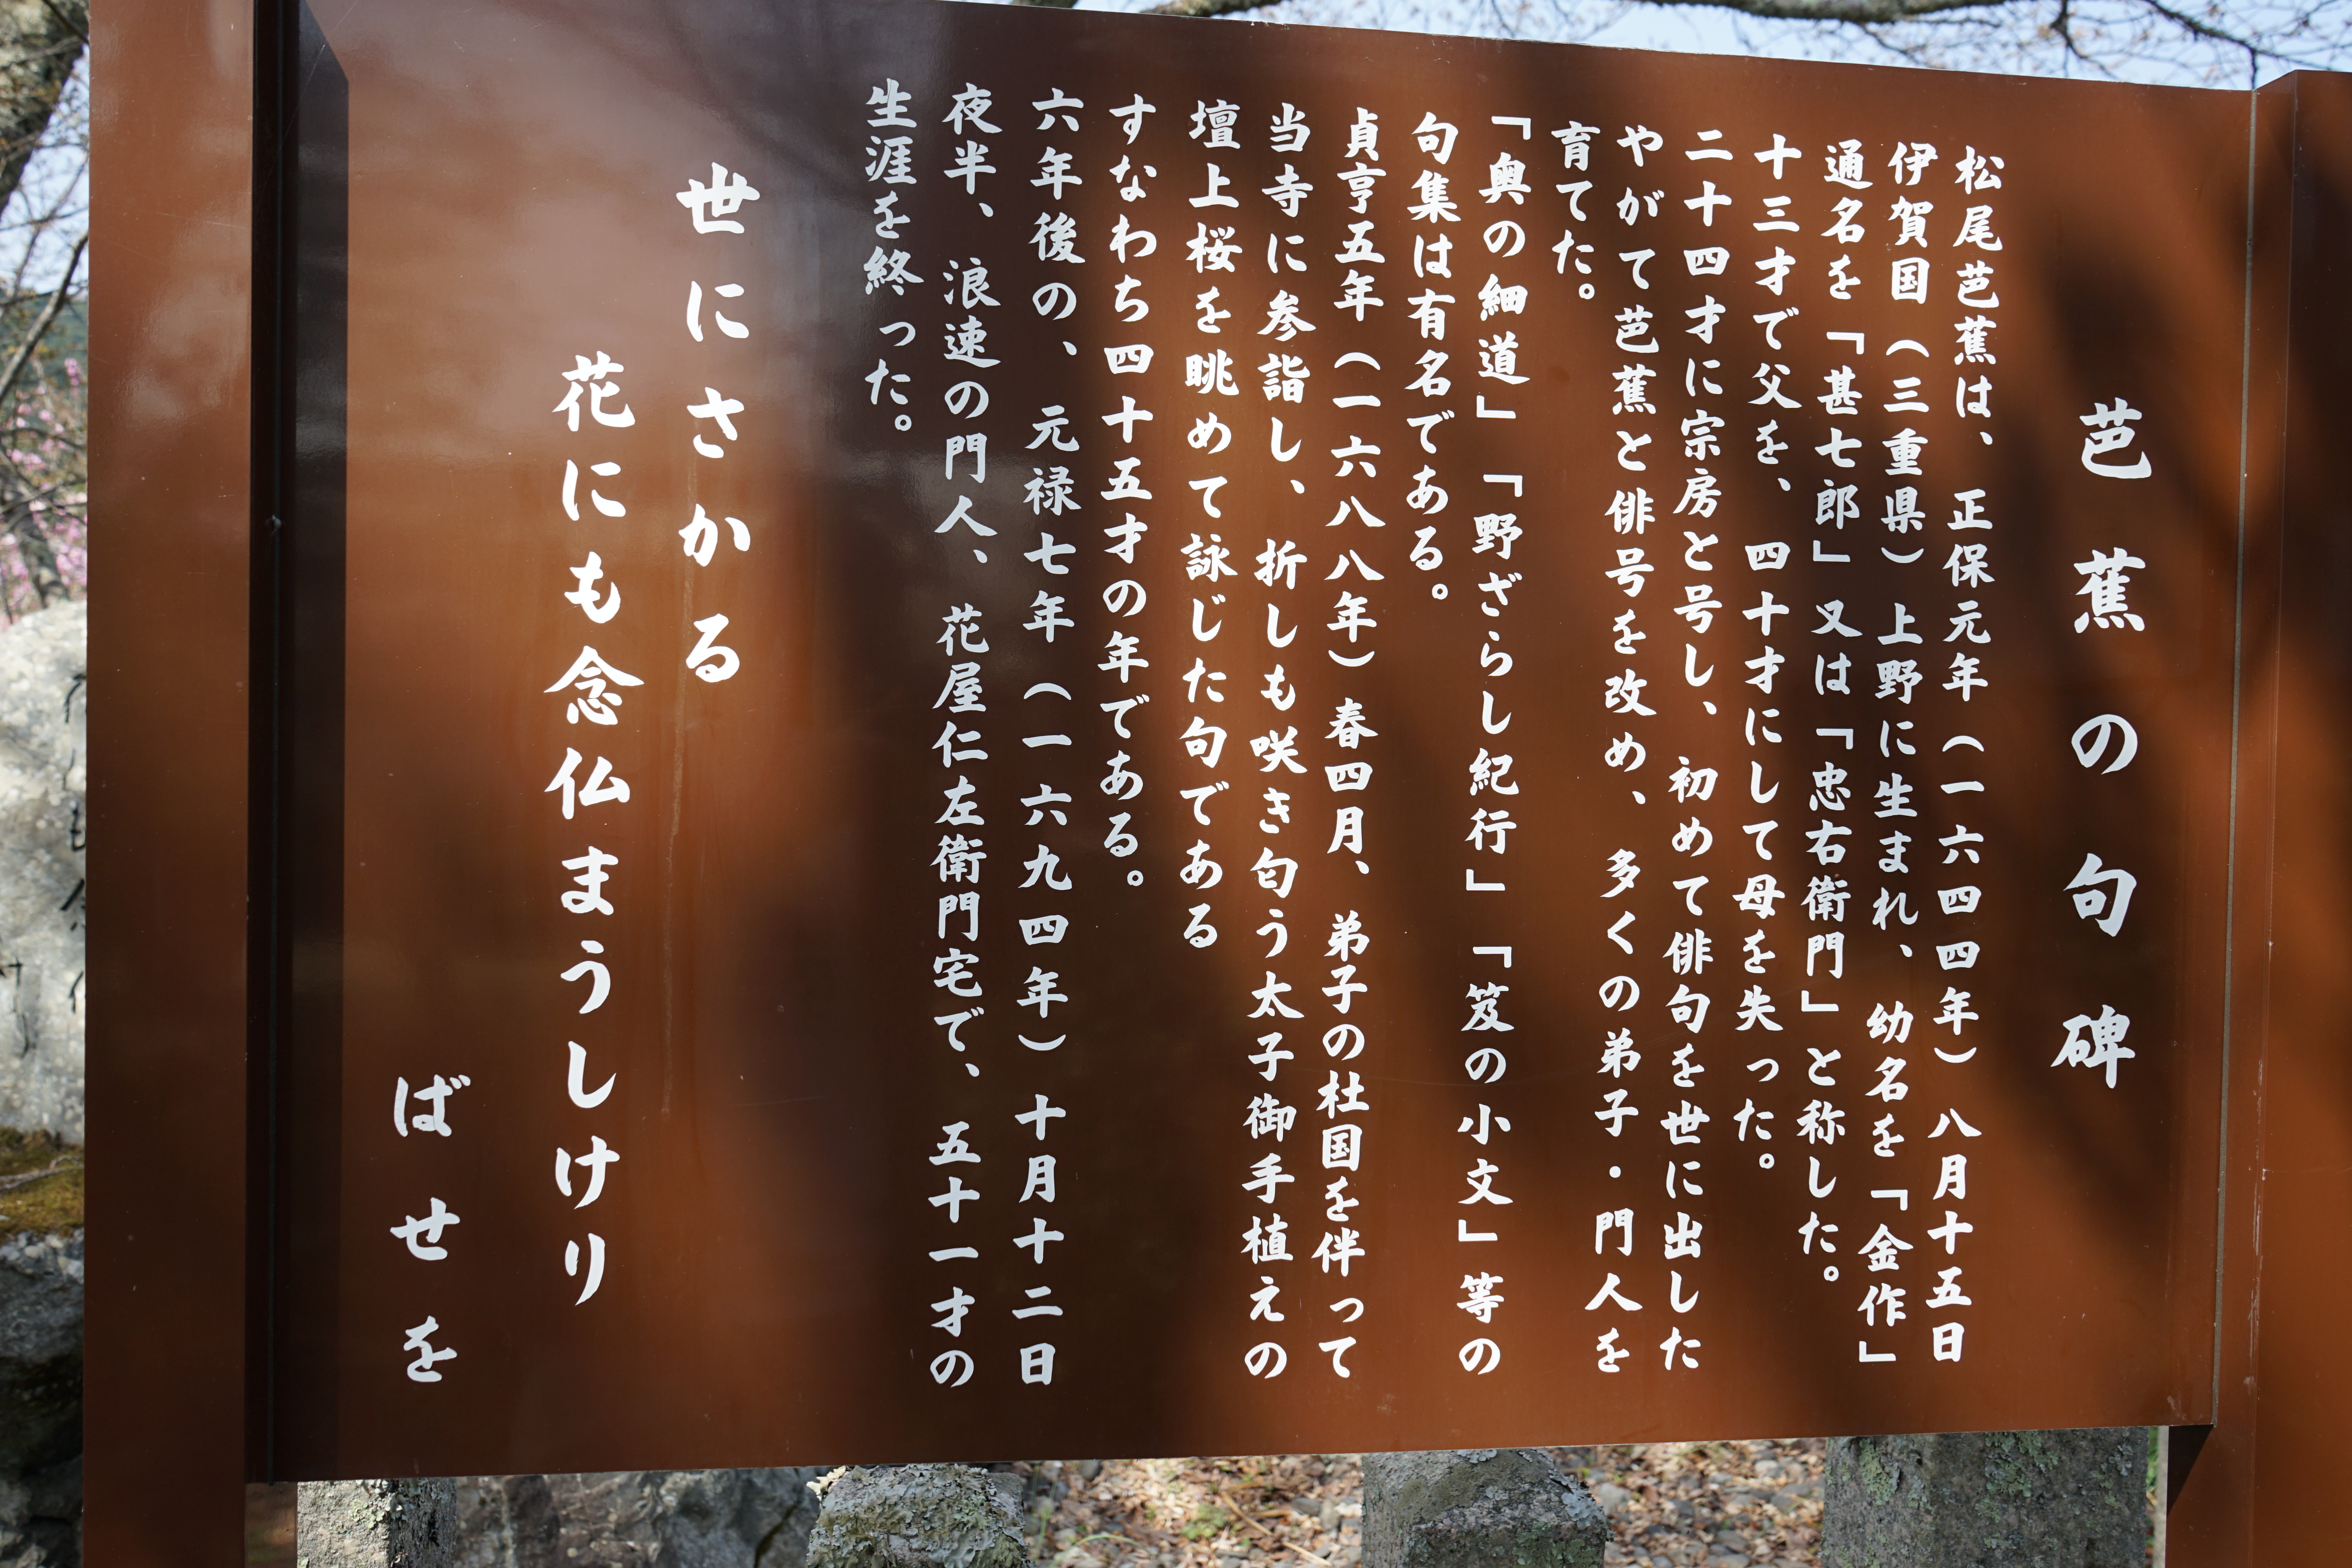 芭蕉の句碑
松尾芭蕉は、正保元年(一六四四年)八月十五日
伊賀国(三重県)上野に生まれ、幼名を「金作」
通名を「甚七郎」又は「忠右衛門」と称した。
十三才で父を、四十才にして母を失った。
二十四才に宗房と号し、初めて俳句を世に出した
やがて芭蕉と俳号を改め、多くの弟子・門人を
育てた。
「奥の細道」「野ざらし紀行」「笈の小文」等の
句集は有名である。
貞亨五年(一六八八年)春四月、弟子の杜国を伴って
当寺に参詣し、折しも咲き匂う太子御手植えの
壇上桜を眺めて詠じた句である
すなわち四十五才の年である。
六年後の、元禄七年(一六九四年)十月十二日
夜半、浪速の門人、花屋仁左衛門宅で、五十一才の
生涯を終った。
世にさかる
花にも念仏まうしけり
ばせを